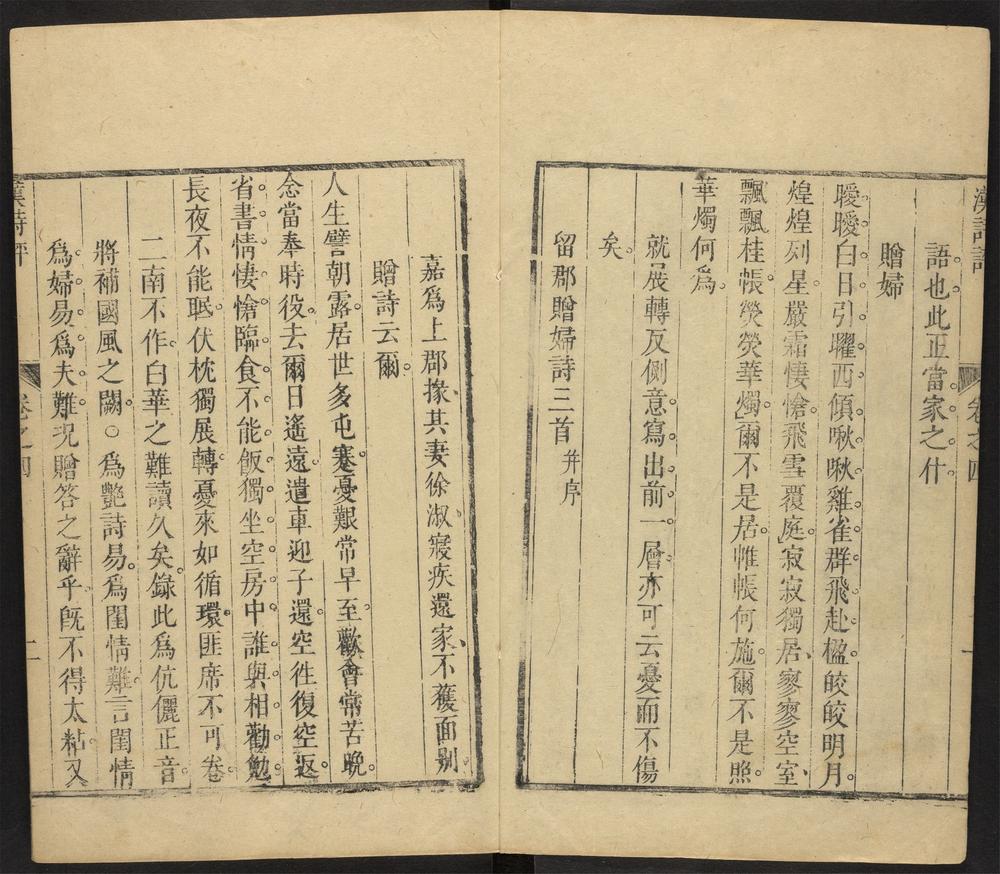 漢詩評
卷之四
語也此正當家之什
贈婦
曖曖白日引曜西傾啾啾雞雀群飛赴楹皎皎明月
煌煌列星嚴霜悽愴飛雪覆庭寂寂獨居寥寥空室
飄飄桂帳熒熒華燭爾不是居帷帳何施爾不是照
華燭何爲
就展轉反側意寫出前一層亦可云憂而不傷
矣
留郡贈婦詩三首并序
嘉爲上郡掾其妻徐淑寢疾還家不獲面别
贈詩云爾
人生譬朝露居世多屯蹇憂艱常早至歡會常苦晚
念當奉時役去爾日遙遠遣車迎子還空徃復空返
省書情悽愴臨食不能飯獨坐空房中誰與相勸勉
長夜不能眠伏枕獨展轉憂來如循環匪席不可卷
二南不作白華之難讀久矣錄此爲伉儷正音
將補國風之闕○爲艷詩易爲閨情難言閨情
爲婦易爲夫難况贈答之辭乎旣不得太粘又
漢詩評
卷之四